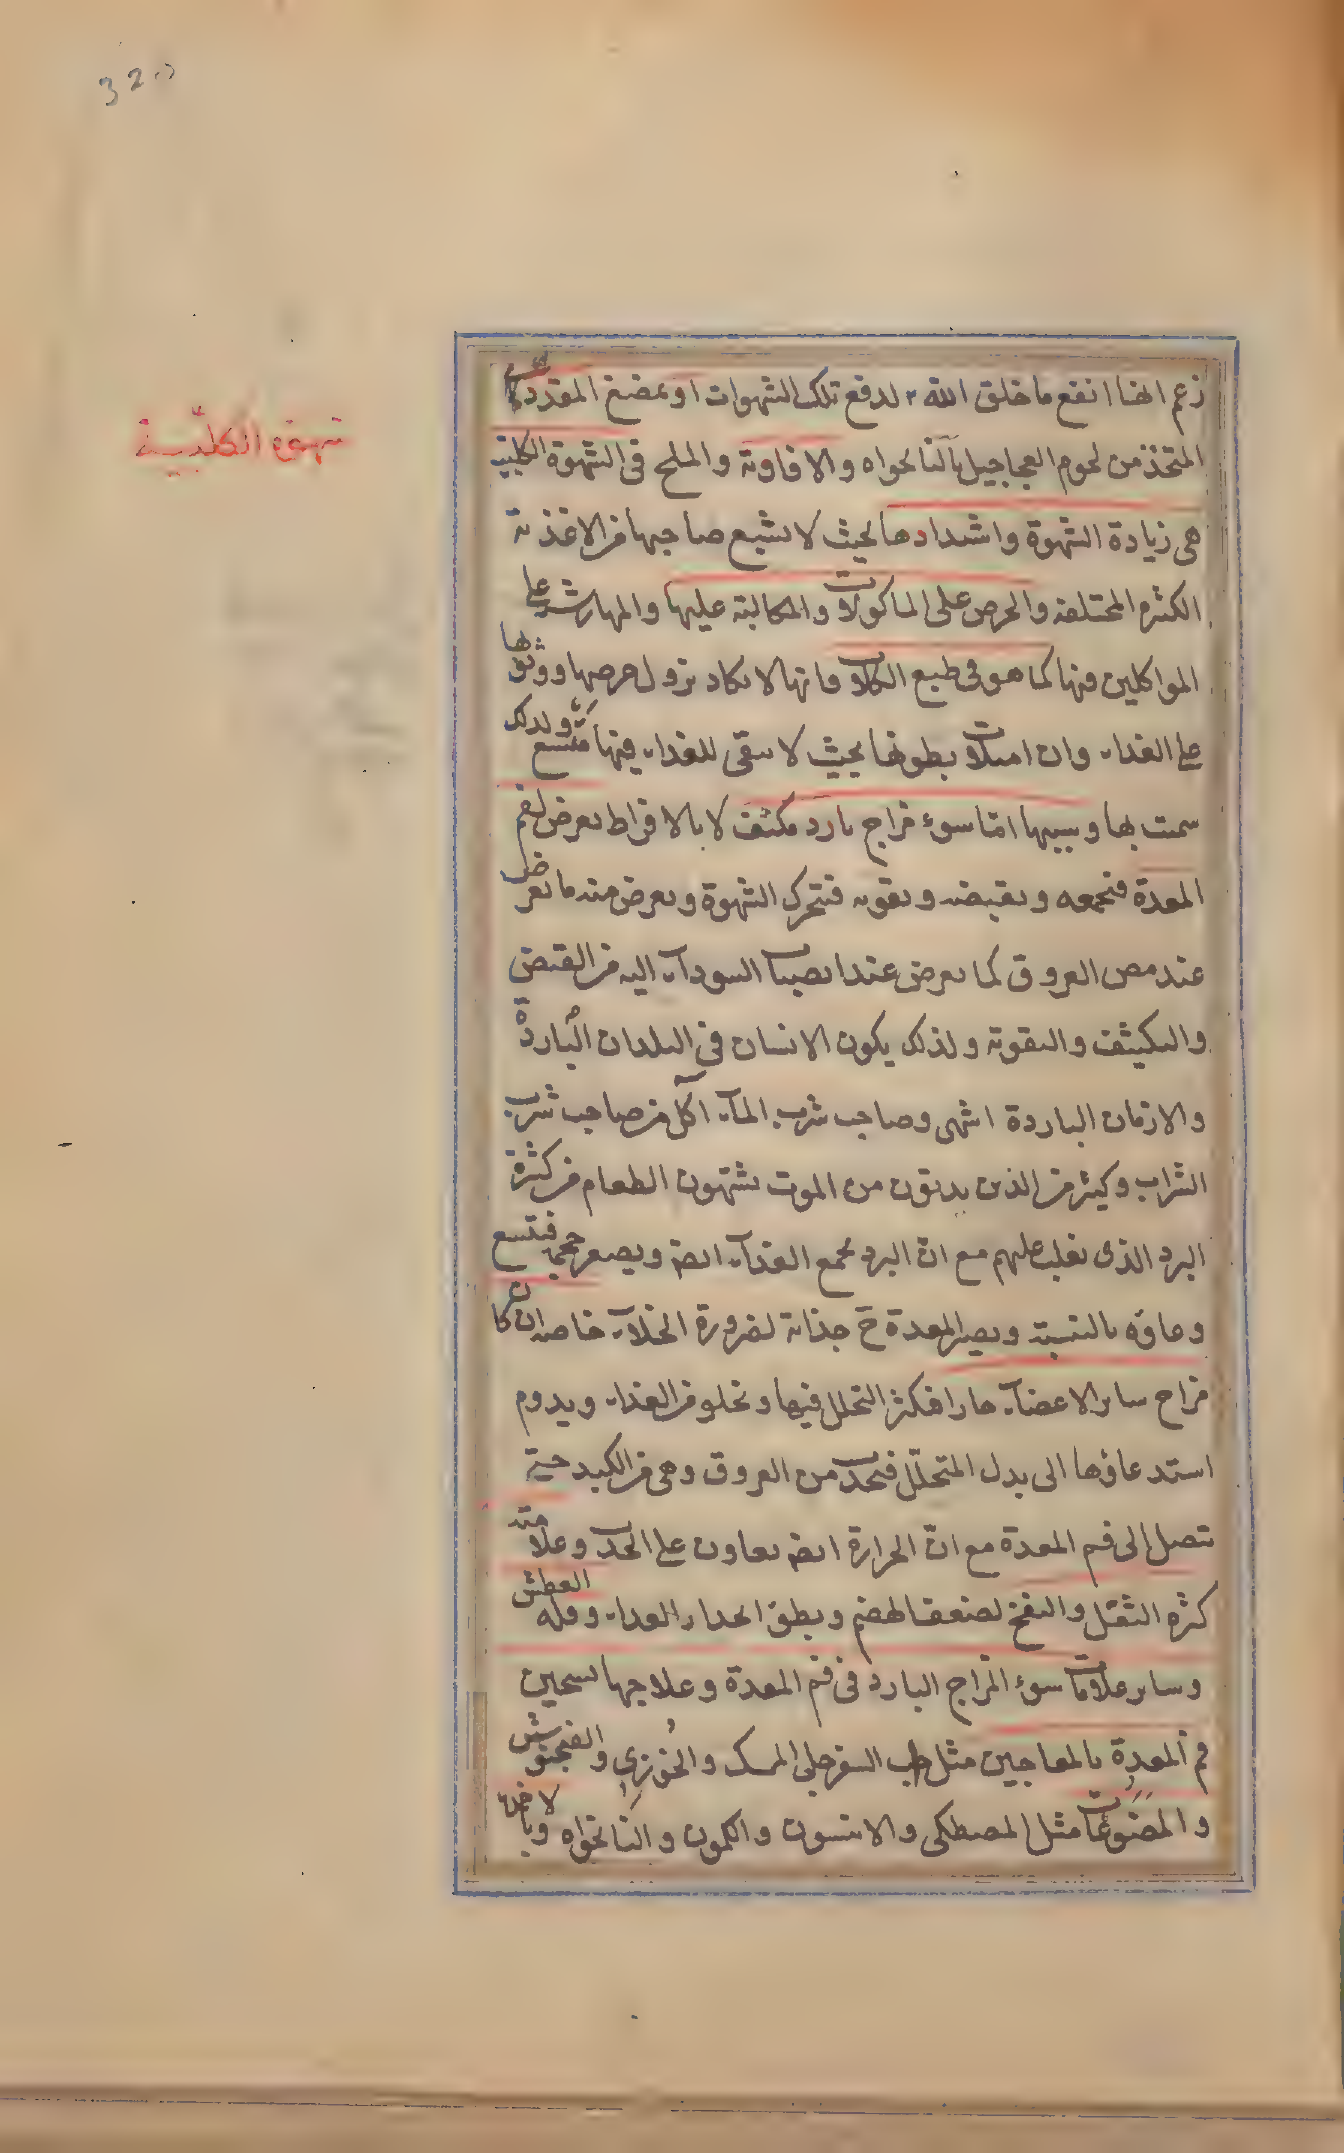 320
شهوة الكلبية
زعم انها انفع ما خلق الله لدفع تلك الشهوات او بمضغ المقدد
المتخذ من لحوم العجاجيل بالنانخواه والافاويه والملح فى الشهوة الكلبية
هى زيادة الشهوة واشتدادها بحيث لا يشبع صاحبها من الاغذية
الكثيرة المختلفة والحرص على الماكولات والمكالبة عليها والمهارشة على
المواكلين فيها كما هو فى طبع الكلاب فانها لا يكاد يزول حرصها ووثوبها
على الغداء وان امتلات بطونها بحيث لا يبقى للغداء فيها متسع ولذلك
سميت بها وسببها اما سوء مزاج بارد مكثف لا بالافراط يعرض لفم
المعدة فيجمعه ويقبضه ويقويه فتتحرك الشهوة ويعرض منه ما يعرض
عند مص العروق كما يعرض عند انصباب السوداء اليه من القبض
والتكثيف والتقوية ولذلك يكون الانسان فى البلدان الباردة
والازمان الباردة اشهى وصاحب شرب الماء آكل من صاحب شرب
الشراب وكثير من الذين يدنون من الموت يشتهون الطعام من كثرة
البرد الذى يغلب عليهم مع ان البرد يجمع الغداء ايضا ويصغر حجمه فيتسع
وعاؤه بالنسبة ويصير المعدة ح جذابة لضرورة الخلاء خاصة ان كان
مزاج ساير الاعضاء حارا فكثر التحلل فيها وتخلو من الغداء ويدوم
استدعاؤها الى بدل المتحلل فتجذب من العروق وهى من الكبد حتى
تتصل الى فم المعدة مع ان الحرارة ايضا يعاون على الجذب وعلامته
كثرة الثقل والنفخ لضعف الهضم وبطؤ انحدار الغداء وقلة العطش
وساير علامات سوء المزاج البارد فى فم المعدة وعلاجها تسخين
فم المعدة بالمعاجين مثل السفرجلى الممسك والخوزى والفنجنوش
والمضوغات مثل المصطكى والانيسون والكمون والنانخواه